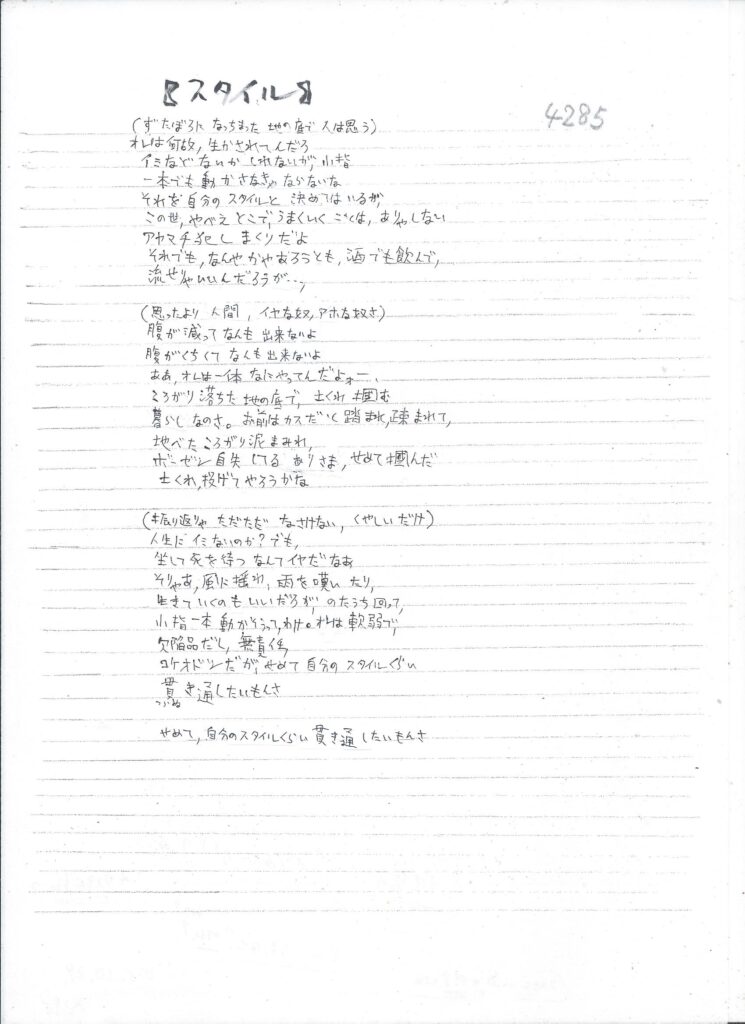 【スタイル】
4285
(ずたぼろに なっちまった 地の底で 人は思う)
オレは何故, 生かされてんだろ
イミなどないかもしれないが, 小指
一本でも動かさなきゃならないな
それを自分のスタイルと 決めてはいるが,
この世, やべえとこで, うまくいくことは, ありゃしない
アヤマチ犯しまくりだよ
それでも, なんやかやあろうとも, 酒でも飲んで,
流せりゃいいんだろうが…,
(思ったより 人間, イヤな奴, アホな奴さ)
腹が減ってなんも出来ないよ
腹がくちくてなんも出来ないよ
ああ, オレは一体なにやってんだよォー、
ころがり落ちた地の底で, 土くれ掴む
暮らしなのさ。お前はカスだいく踏まれ, 疎まれて,
地べたころがり泥まみれ,
ボーゼン自失してる ありさま, せめて掴んだ
土くれ, 投げてやろうかな
(振り返りゃ ただただ なさけない, くやしいだけ)
人生にイミないのか？でも,
坐して死を待つなんてイヤだなあ
そりゃあ, 風に揺れ, 雨を嘆いたり,
生きていくのもいいだろが, のたうち回って,
小指一本動かそうって, わけ。オレは軟弱で,
欠陥品だし, 無責任,
ロケオドンだが, せめて自分のスタイルぐらい
貫き通したいもんさ
つらぬ
せめて, 自分のスタイルくらい貫き通したいもんさ